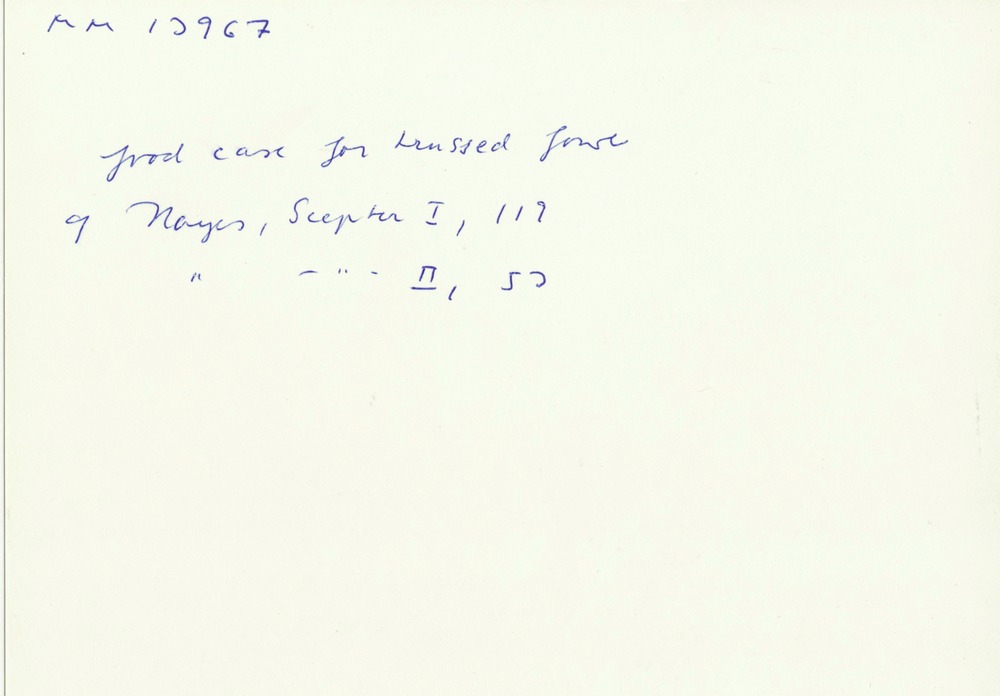 MM 13967
food case for trussed fowl
cf Hayes, Scepter I, 119
" – " - II, 53